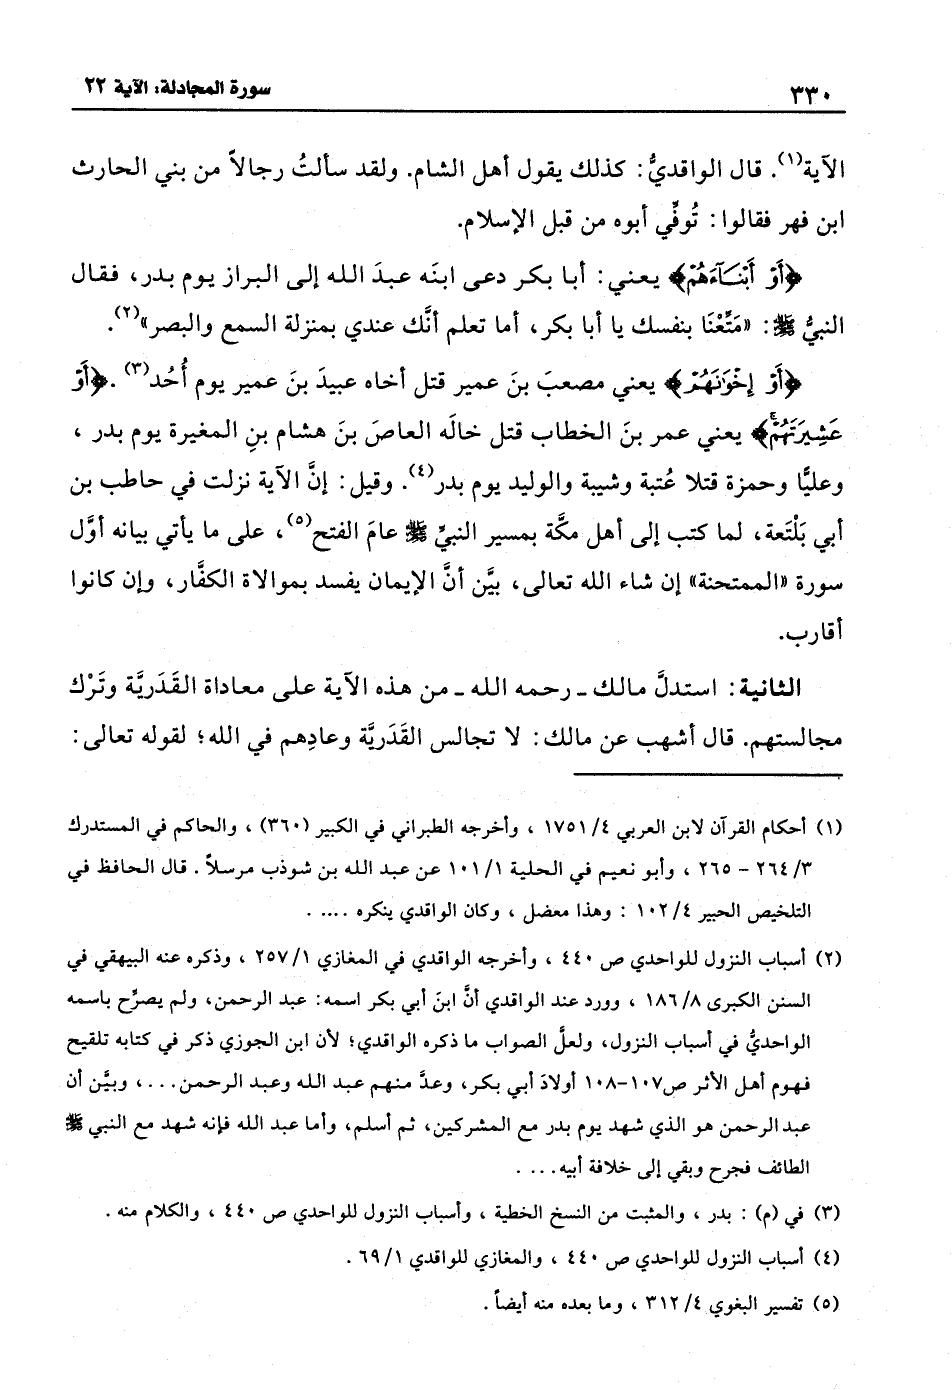 ٣٣٠ سورة المجادلة: الآية ٢٢
الآية(١). قال الواقديُّ: كذلك يقول أهل الشام. ولقد سألتُ رجالاً من بني الحارث
ابن فهر فقالوا: تُوفِّي أبوه من قبل الإسلام.
﴿أَوْ أَبْنَآءَهُمْ﴾ يعني: أبا بكر دعى ابنَه عبدَ الله إلى البراز يوم بدر، فقال
النبيُّ ﷺ: «مَتِّعْنَا بنفسك يا أبا بكر، أما تعلم أنَّك عندي بمنزلة السمع والبصر»(٢).
﴿أَوْ إِخْوَٰنَهُمْ﴾ يعني مصعبَ بنَ عمير قتل أخاه عبيدَ بنَ عمير يوم أُحُد(٣). ﴿أَوْ
عَشِيرَتَهُمْۚ﴾ يعني عمر بنَ الخطاب قتل خالَه العاصَ بنَ هشام بنِ المغيرة يوم بدر ،
وعليًّا وحمزة قتلا عُتبة وشيبة والوليد يوم بدر(٤). وقيل: إنَّ الآية نزلت في حاطب بن
أبي بَلْتَعة، لما كتب إلى أهل مكَّة بمسير النبيِّ ﷺ عامَ الفتح(٥)، على ما يأتي بيانه أوَّل
سورة «الممتحنة» إن شاء الله تعالى، بيَّن أنَّ الإيمان يفسد بموالاة الكفَّار، وإن كانوا
أقارب.
الثانية: استدلَّ مالك ـ رحمه الله ـ من هذه الآية على معاداة القَدَريَّة وتَرْك
مجالستهم. قال أشهب عن مالك: لا تجالس القَدَريَّة وعادِهم في الله؛ لقوله تعالى:
(١) أحكام القرآن لابن العربي ٤/ ١٧٥١ ، وأخرجه الطبراني في الكبير (٣٦٠) ، والحاكم في المستدرك
٣/ ٢٦٤ - ٢٦٥ ، وأبو نعيم في الحلية ١/ ١٠١ عن عبد الله بن شوذب مرسلاً . قال الحافظ في
التلخيص الحبير ٤/ ١٠٢ : وهذا معضل ، وكان الواقدي ينكره .... .
(٢) أسباب النزول للواحدي ص ٤٤٠ ، وأخرجه الواقدي في المغازي ١/ ٢٥٧ ، وذكره عنه البيهقي في
السنن الكبرى ٨/ ١٨٦ ، وورد عند الواقدي أنَّ ابنَ أبي بكر اسمه: عبد الرحمن، ولم يصرِّح باسمه
الواحديُّ في أسباب النزول، ولعلَّ الصواب ما ذكره الواقدي؛ لأن ابن الجوزي ذكر في كتابه تلقيح
فهوم أهل الأثر ص١٠٧-١٠٨ أولادَ أبي بكر، وعدَّ منهم عبد الله وعبد الرحمن...، وبيَّن أن
عبد الرحمن هو الذي شهد يوم بدر مع المشركين، ثم أسلم، وأما عبد الله فإنه شهد مع النبي ﷺ
الطائف فجرح وبقي إلى خلافة أبيه... .
(٣) في (م) : بدر ، والمثبت من النسخ الخطية ، وأسباب النزول للواحدي ص ٤٤٠ ، والكلام منه .
(٤) أسباب النزول للواحدي ص ٤٤٠ ، والمغازي للواقدي ١/ ٦٩ .
(٥) تفسير البغوي ٤/ ٣١٢ ، وما بعده منه أيضاً .